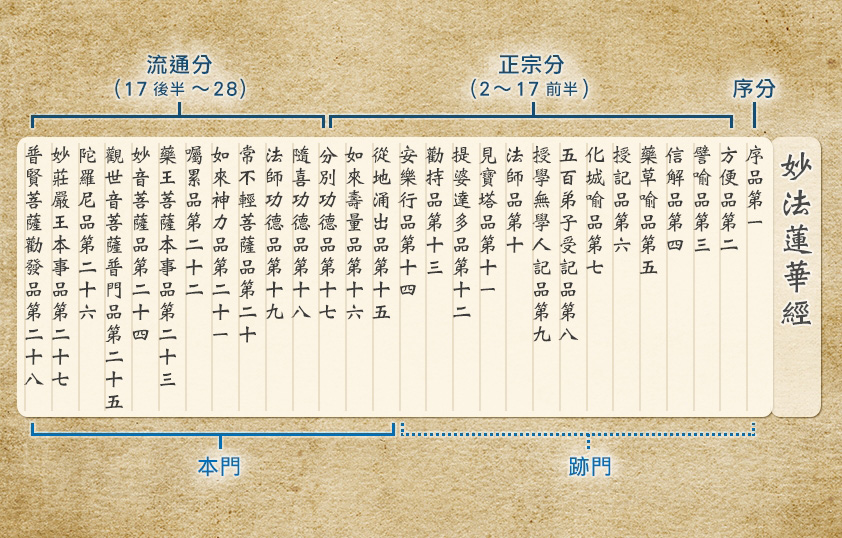 流通分
(17 後半 ～28)
正宗分
(2～17 前半)
序分
妙法蓮華經
序品第一
方便品第二
譬喻品第三
信解品第四
藥草喻品第五
授記品第六
化城喻品第七
五百弟子受記品第八
授學無學人記品第九
法師品第十
見寶塔品第十一
提婆達多品第十二
勸持品第十三
安樂行品第十四
從地涌出品第十五
如來壽量品第十六
分別功德品第十七
隨喜功德品第十八
法師功德品第十九
常不輕菩薩品第二十
如來神力品第二十一
囑累品第二十二
藥王菩薩本事品第二十三
妙音菩薩品第二十四
觀世音菩薩普門品第二十五
陀羅尼品第二十六
妙莊嚴王本事品第二十七
普賢菩薩勸發品第二十八
本門
跡門